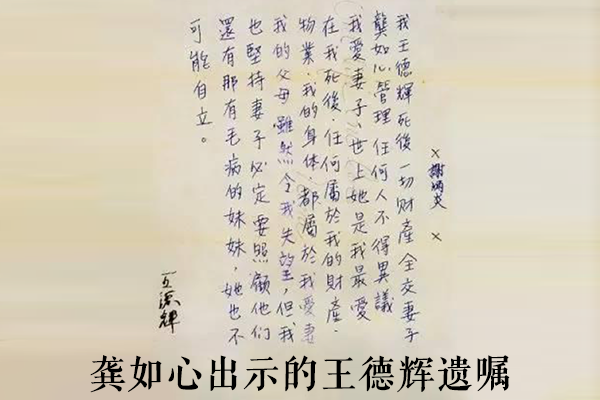 x 謝炳炎 x
我王德輝死後一切財產全交妻子
龔如心管理任何人不得異議
我愛妻子、世上她是我最愛
在我死後.任何屬於我的財產.
物業.我的身体.都屬於我愛妻
我的父母雖然令我失望,但我
也堅持妻子必定要照顧他們
還有那有毛病的妹妹,她也不
可能自立。
王德輝
龚如心出示的王德辉遗嘱